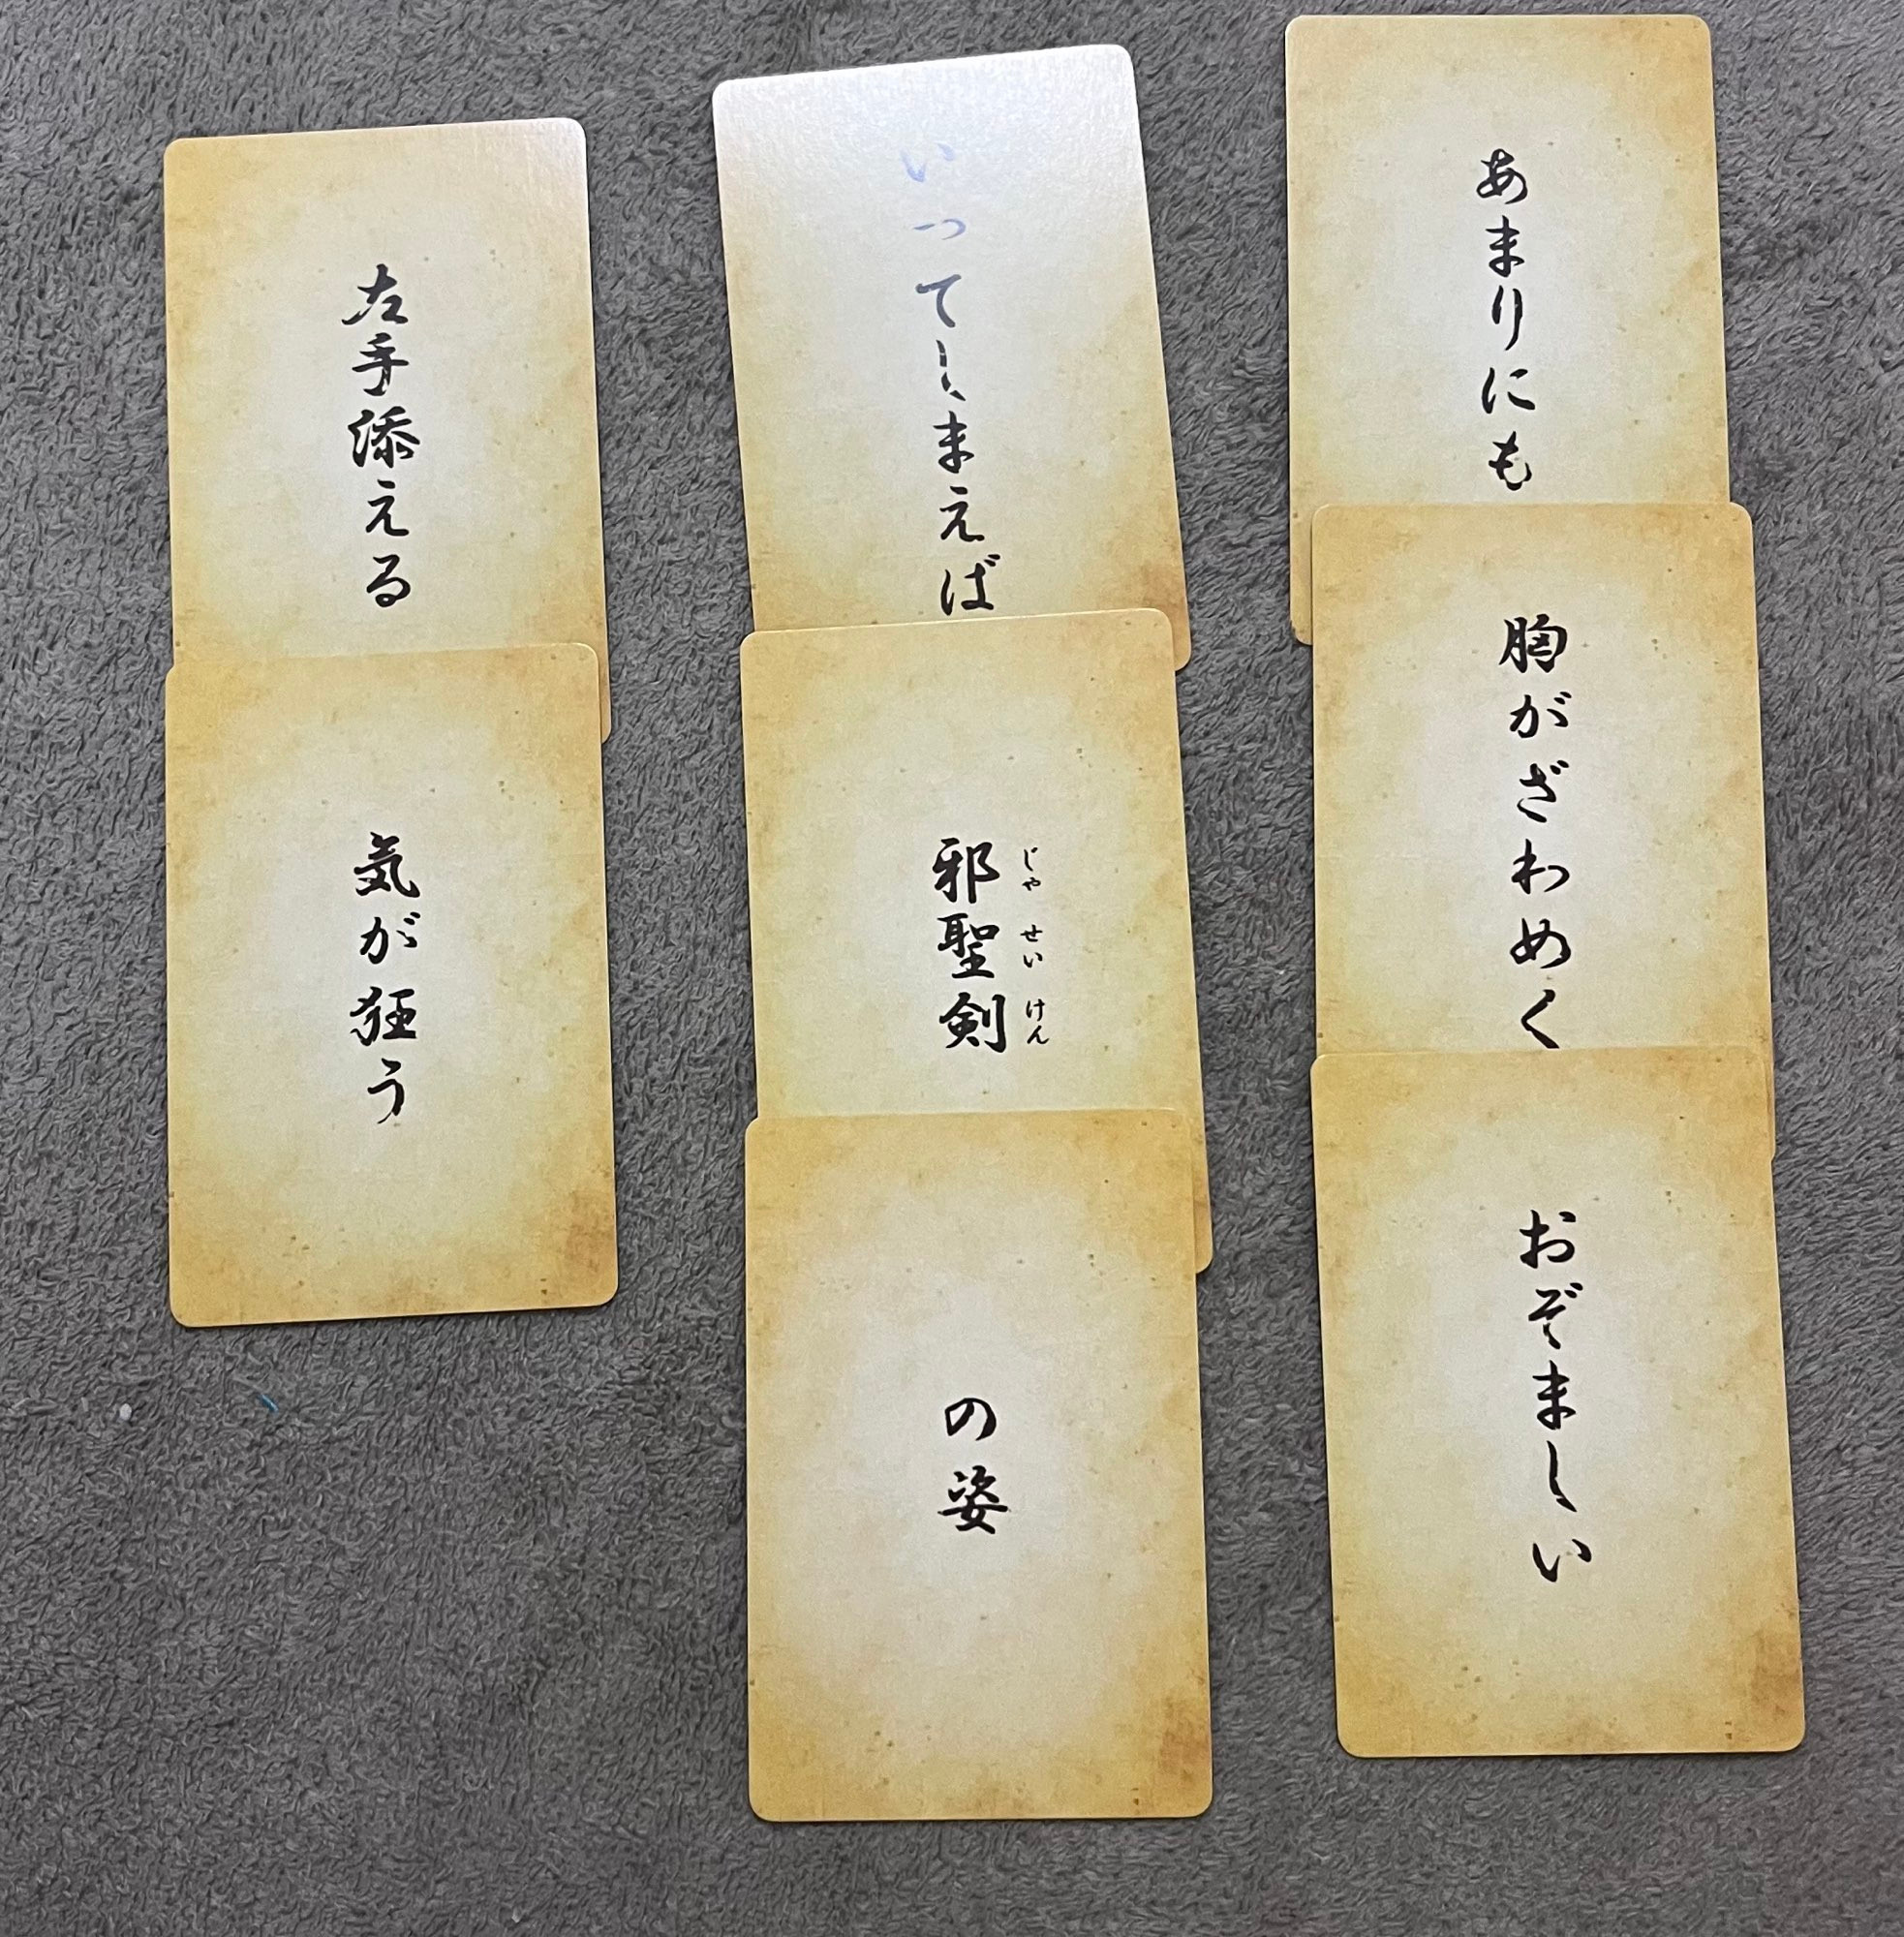 あまりにも
胸がざわめく
おぞましい
いってしまえば
邪聖剣
じゃせいけん
の姿
左手添える
気が狂う